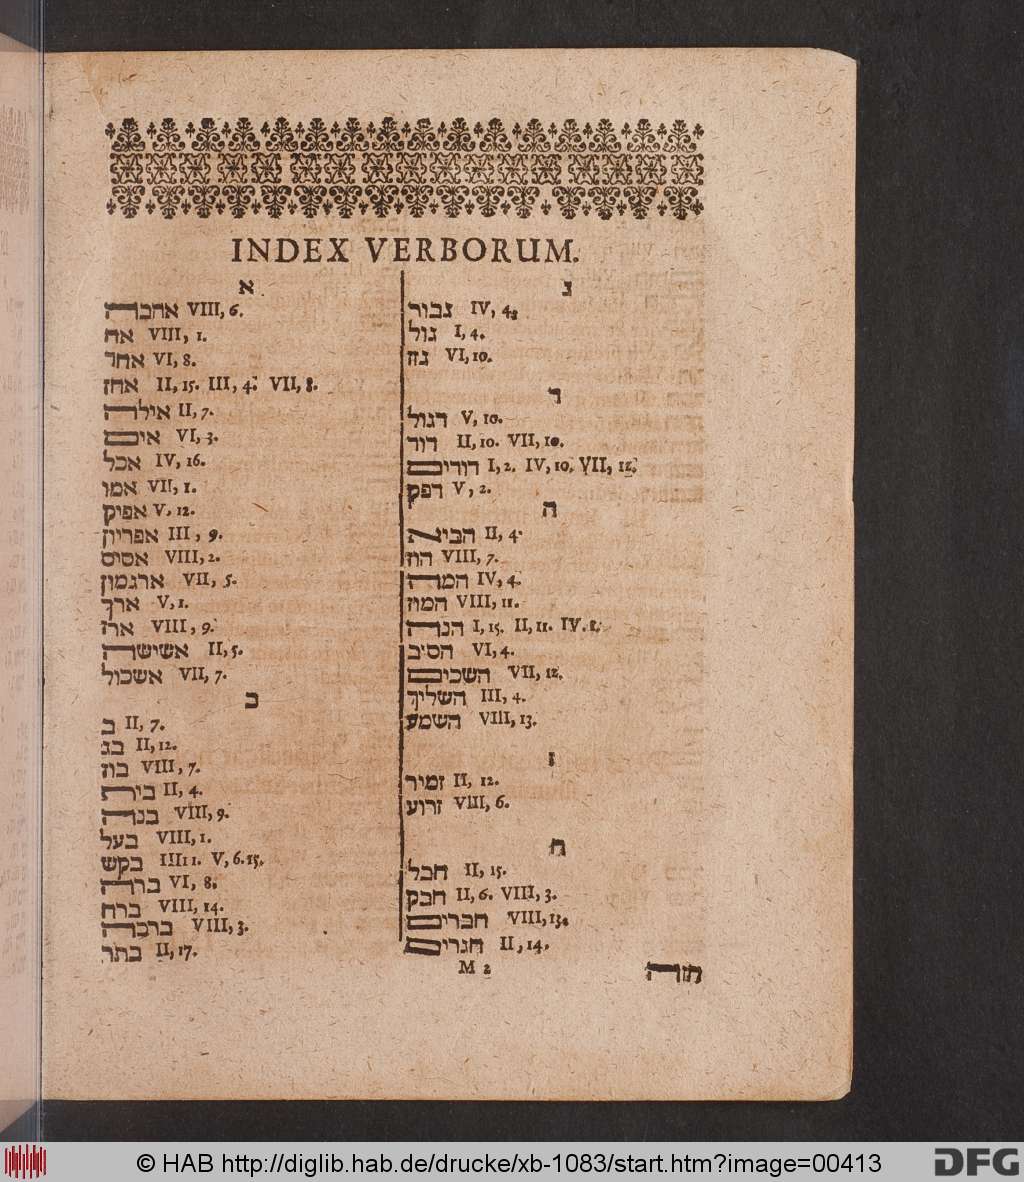 INDEX VERBORUM.
א
אהבה VIII, 6.
אח VIII, 1.
אחד VI, 8.
אחז II, 15. III, 4. VII, 8.
אילה II, 7.
אים VI, 3.
אכל IV, 16.
אמן VII, 1.
אפיק V, 12.
אפריון III, 9.
אסיס VIII, 2.
ארגמון VII, 5.
ארך V, 1.
ארז VIII, 9.
אשישה II, 5.
אשכול VII, 7.
ב
ב II, 7.
בג II, 12.
בוז VIII, 7.
בית II, 4.
בנה VIII, 9.
בעל VIII, 1.
בקש III 1. V, 6. 15.
ברה VI, 8.
ברח VIII, 14.
ברכה VIII, 3.
בתר II, 17.
ג
גבור IV, 4.
גול I, 4.
גנ VI, 10.
ד
דגול V, 10.
דוד II, 10. VII, 10.
דודים I, 2. IV, 10. VII, 12.
דפק V, 2.
ה
הביא II, 4.
הון VIII, 7.
המה IV, 4.
המון VIII, 11.
הנה I, 15. II, 11. IV. 1.
הסיב VI, 4.
השכים VII, 12.
השליך III, 4.
השמע VIII, 13.
ז
זמיר II, 12.
זרוע VIII, 6.
ח
חבל II, 15.
חבק II, 6. VIII, 3.
חברים VIII, 13.
חגוים II, 14.
M 2
חוה
© HAB http://diglib.hab.de/drucke/xb-1083/start.htm?image=00413
DFG